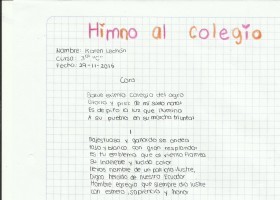 Himno al colegio
Nombre: Karen
Curso: 3ro "C"
Fecha: 27-11-2014
Coro
Salve eximio colegio del agro
Gloria y prez de mi suelo natal
Es de pito la luz que ilumina
A su puebla en su marcha triunfal
I
Majestuosa y gallarda se ondea
Rojo y blanco con gran resplandor
Es tu emblema que al viento flamea
Su brillante y lucido color
llevas nombre de un patriota ilustre,
Digno heredo de nuestro Ecuador
Nombre egregio que siempre dio lustre
con esmero, sapiencia y honor